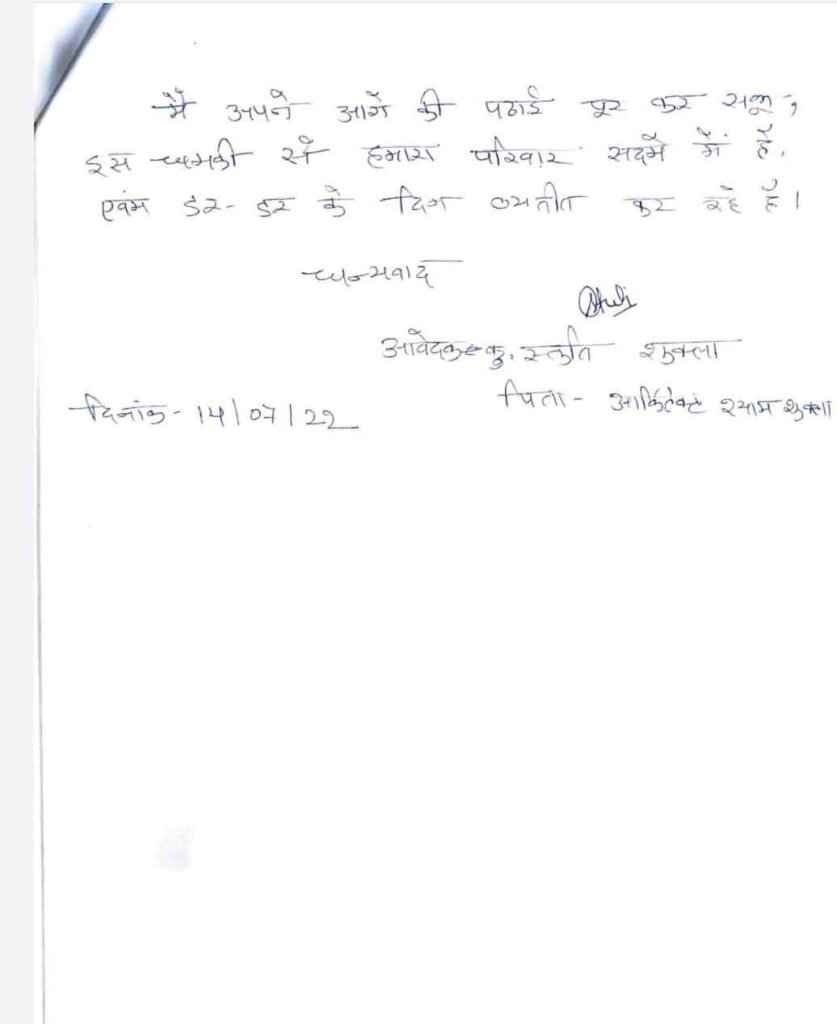 मैं अपने आगें की पढाई पूर कर सकू,
इस धमकी से हमारा परिवार सदमें में है,
एवंम डर-डर के दिन व्यतीत कर रहे है।
धन्यवाद
आवेदक- कु. स्तुति शुक्ला
पिता- आर्किटेक्ट श्याम शुक्ला
दिनांक- 14/07/22